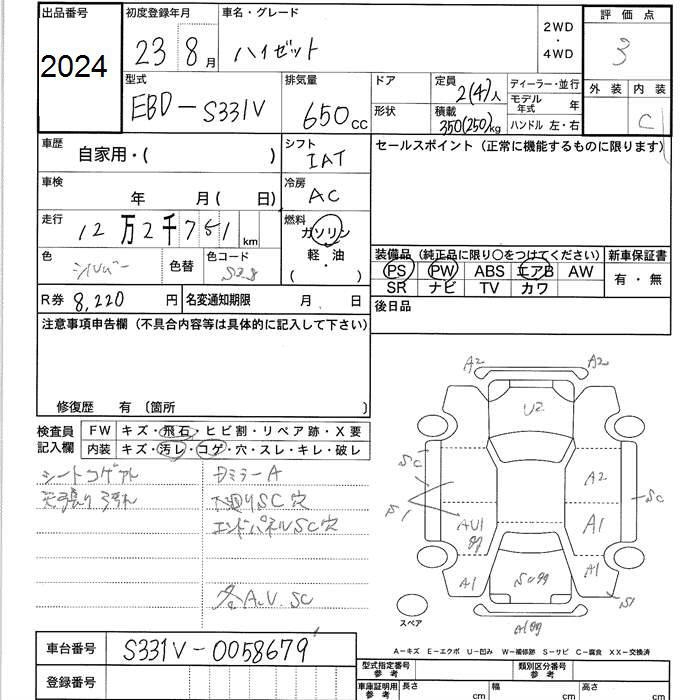 出品番号
2024
初度登録年月
23 8月
車名・グレード
ハイゼット
2WD
・
4WD
評価点
3
外装 内装
C
型式
EBD-S331V
排気量
650cc
ドア
形状
定員
2(4)人
積載
350(250)kg
ディーラー・並行
モデル年式 年
ハンドル 左・右
車歴
自家用・( )
シフト
IAT
セールスポイント(正常に機能するものに限ります)
車検
年 月( 日)
冷房
AC
走行
12万2千751km
燃料
ガソリン
軽・油
( )
色
シルバー
色替
色コード
S28
装備品(純正品に限り○をつけてください)
PS PW ABS エアB AW
SR ナビ TV カワ
新車保証書
有・無
R券 8,220円
名変通知期限 月 日
後日品
注意事項申告欄(不具合内容等は具体的に記入して下さい)
修復歴 有〔箇所 〕
検査員記入欄
FW キズ・飛石・ヒビ割・リペア跡・X要
内装 キズ・汚レ・コゲ・穴・スレ・キレ・破レ
シートコゲアル
天張り汚れ
DミラーA
下廻りSC穴
エンドパネルSC穴
各A.U.SC
A2 A2
U2
SC
A2
SC
S1
AU1
A1
A1
A1
S1
スペア
A-キズ E-エクボ U-凹み W-補修跡 S-サビ C-腐食 XX-交換済
車台番号
S331V-0058679
登録番号
型式指定番号
参考
類別区分番号
参考
車庫証明用
参考
長さ cm
幅 cm
高さ cm